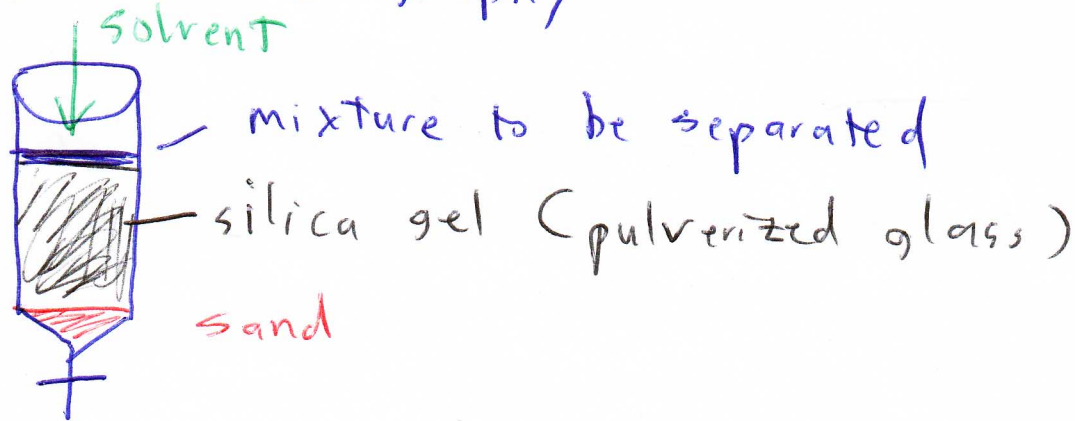 solvent
mixture to be separated
silica gel (pulverized glass)
sand